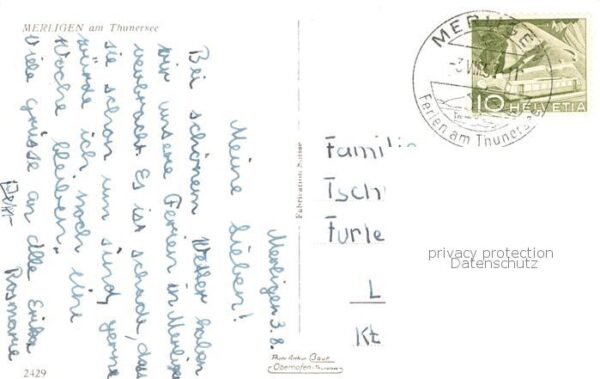 MERLIGEN am Thunersee
Merligen 3.8.
Meine Lieben!
Bei schönem Wetter haben
wir unsere Ferien in Merligen
verbracht. Es ist schade, dass
sie schon um sind, gerne
würde ich noch eine
Woche bleiben.
Viele Grüsse an alle Erika
Rosmarie
2429
Fabrication Suisse
Photo Arthur Baur
Oberhofen-Thunersee
MERLIGEN
Ferien am Thunersee
10 HELVETIA
Famili
Tsch
Furle
L
Kt
privacy protection
Datenschutz